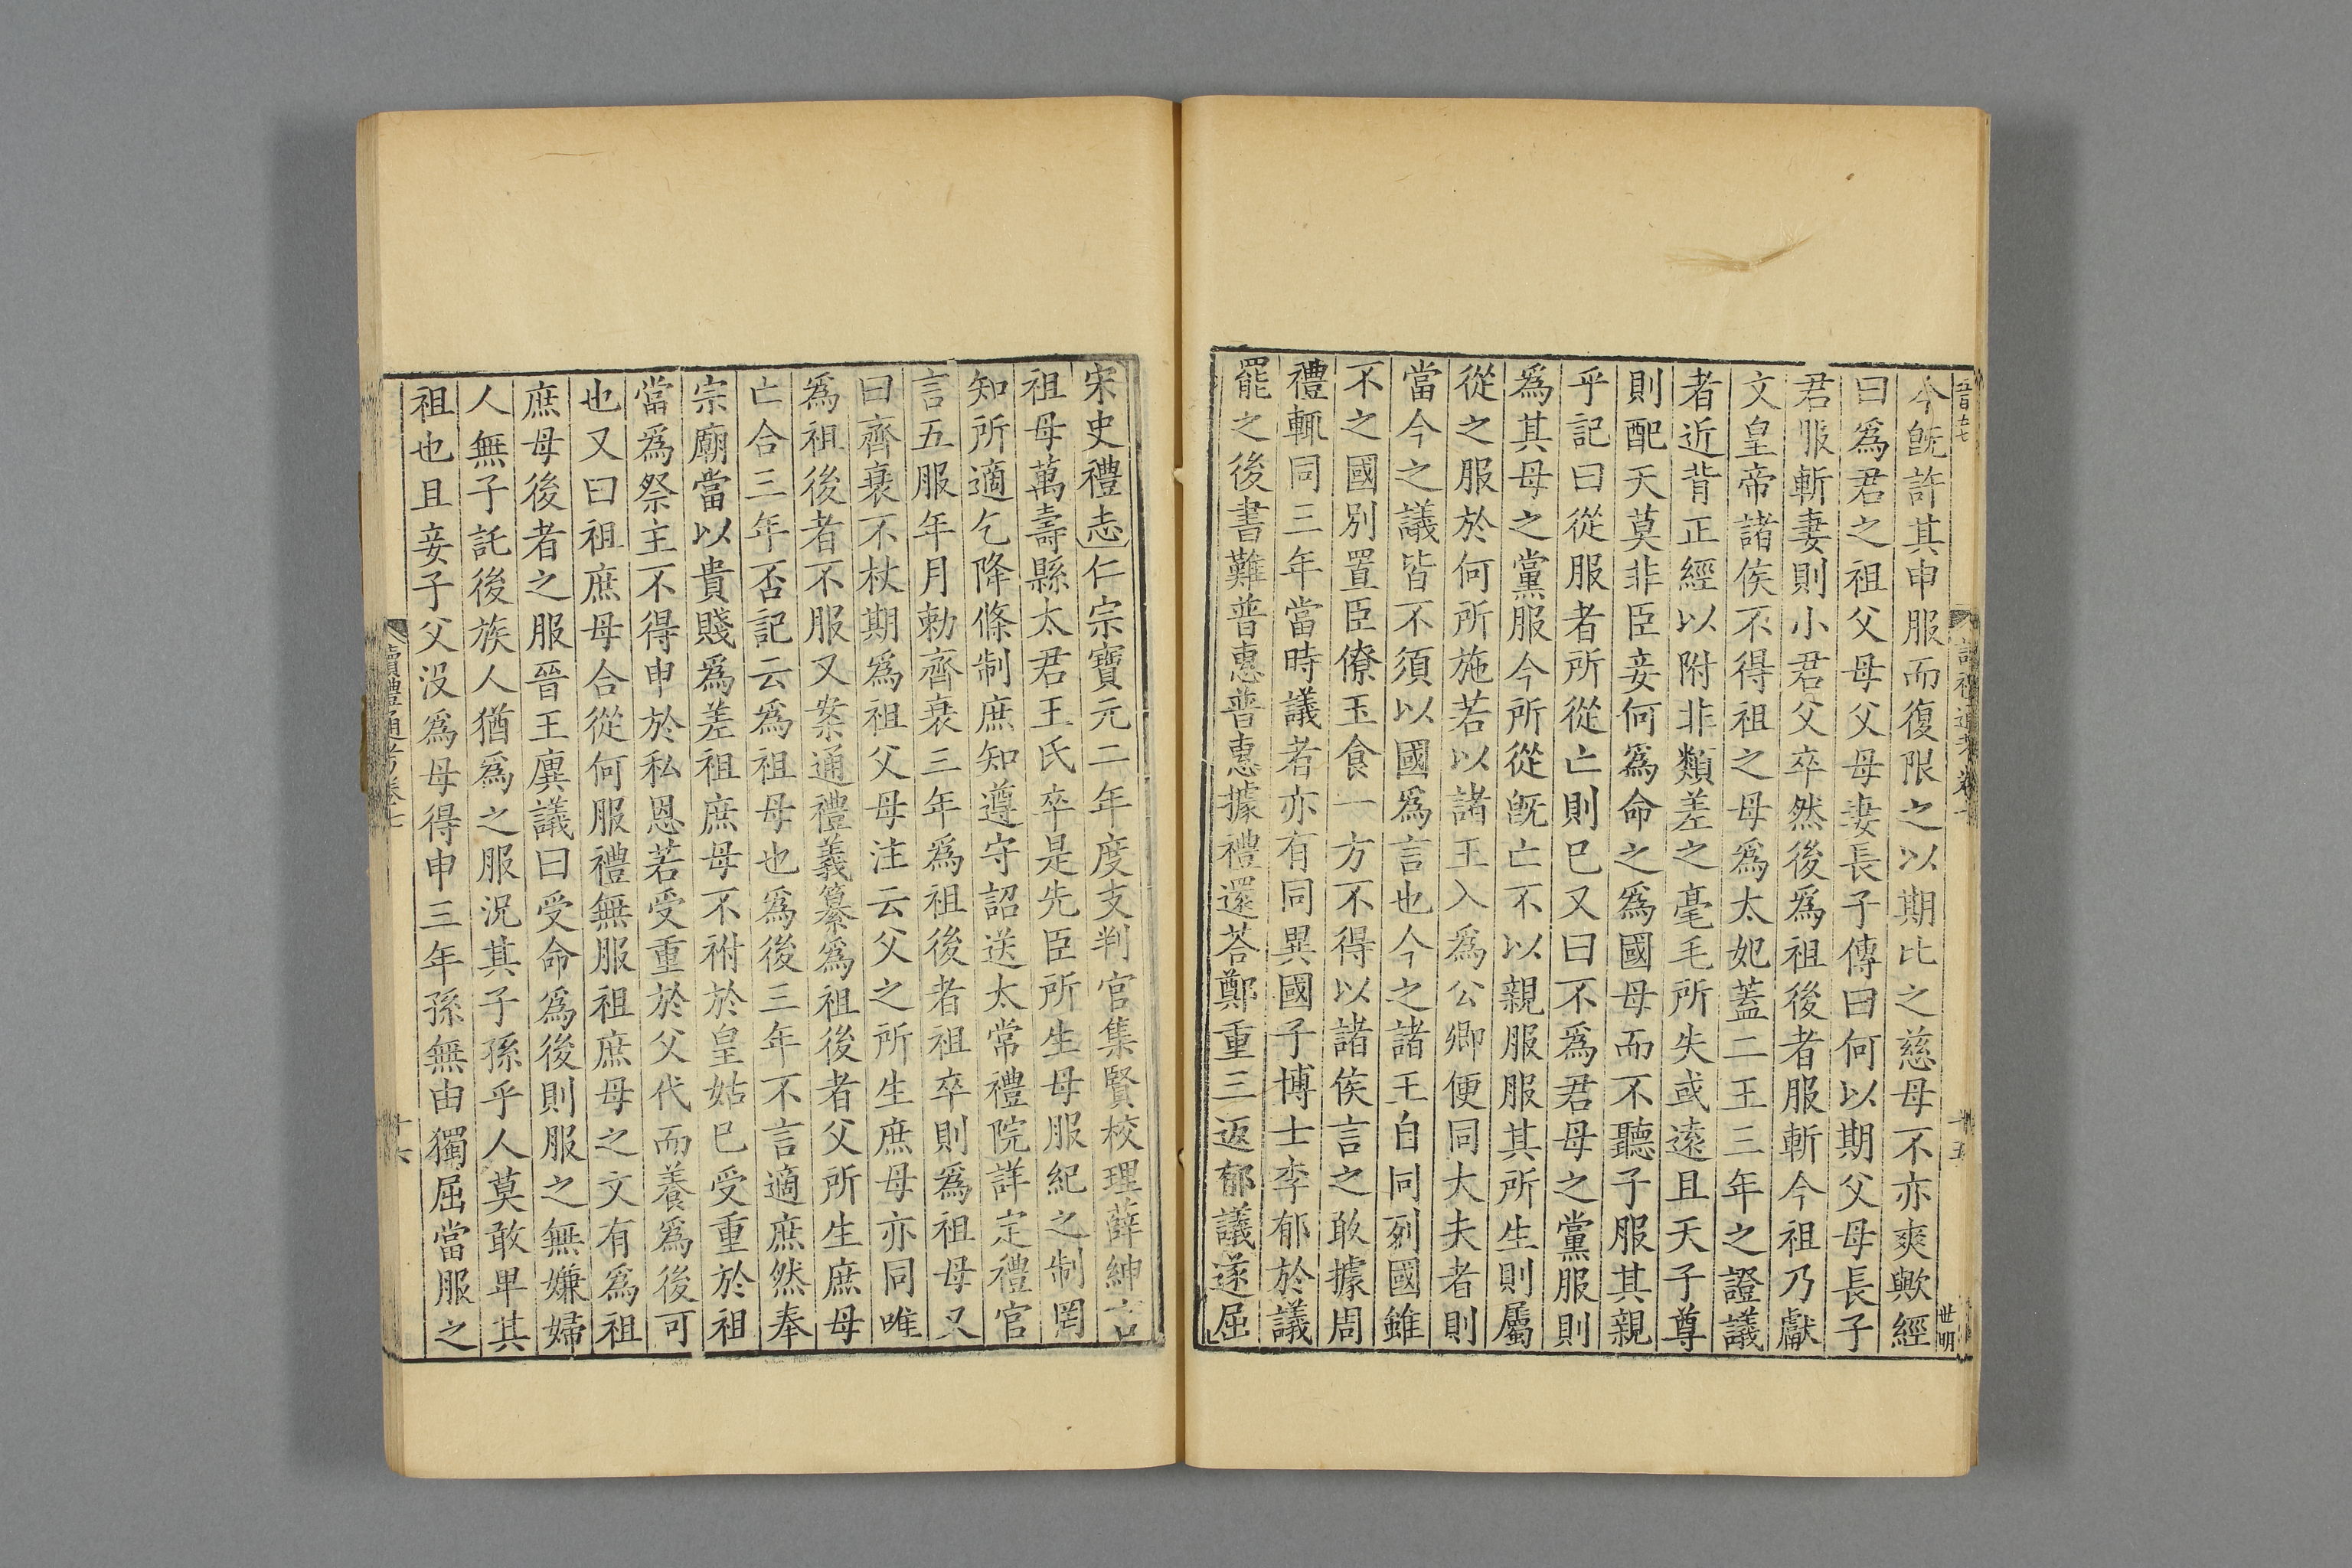 今旣許其申服而復限之以期比之慈母不亦爽歟經
曰爲君之祖父母父母妻長子傳曰何以期父母長子
君服斬妻則小君父卒然後爲祖後者服斬今祖乃獻
文皇帝諸侯不得祖之母爲太妃蓋二王三年之證議
者近背正經以附非類差之毫毛所失或遠且天子尊
則配天莫非臣妾何爲命之爲國母而不聽子服其親
乎記曰從服者所從亡則已又曰不爲君母之黨服則
爲其母之黨服今所從旣亡不以親服服其所生則屬
從之服於何所施若以諸王入爲公卿便同大夫者則
當今之議皆不須以國爲言也今之諸王自同列國雖
不之國別置臣僚玉食一方不得以諸侯言之敢據周
禮輒同三年當時議者亦有同異國子博士李郁於議
罷之後書難普惠普惠據禮還荅鄭重三返郁議遂屈
世明
十五
宋史禮志仁宗寶元二年度支判官集賢校理薛紳言
祖母萬壽縣太君王氏卒是先臣所生母服紀之制罔
知所適乞降條制庶知遵守詔送太常禮院詳定禮官
言五服年月勅齊衰三年爲祖後者祖卒則爲祖母又
曰齊衰不杖期爲祖父母注云父之所生庶母亦同唯
爲祖後者不服又案通禮義纂爲祖後者父所生庶母
亡合三年否記云爲祖母也爲後三年不言適庶然奉
宗廟當以貴賤爲差祖庶母不祔於皇姑已受重於祖
當爲祭主不得申於私恩若受重於父代而養爲後可
也又曰祖庶母合從何服禮無服祖庶母之文有爲祖
庶母後者之服晉王廙議曰受命爲後則服之無嫌婦
人無子託後族人猶爲之服況其子孫乎人莫敢卑其
祖也且妾子父没爲母得申三年孫無由獨屈當服之
讀禮通考卷七
十六